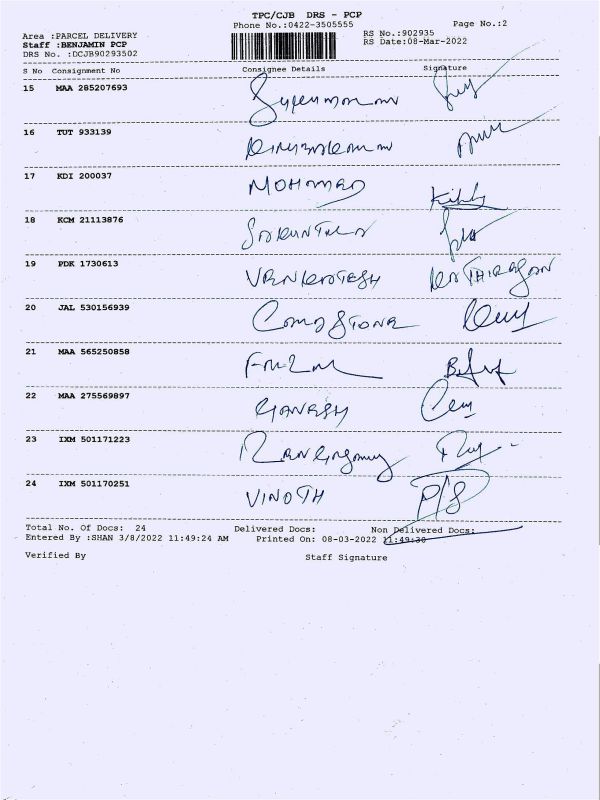 TPC/CJB DRS - PCP
Phone No.:0422-3505555 Page No.:2
Area :PARCEL DELIVERY RS No.:902935
Staff :BENJAMIN PCP RS Date:08-Mar-2022
DRS No. :DCJB90293502
S No Consignment No Consignee Details Signature
15 MAA 285207693
16 TUT 933139
17 KDI 200037 MOHAMED
18 KCM 21113876 SAKUNTALA
19 PDK 1730613 VENKATESH KATHIRESAN
20 JAL 530156939
21 MAA 565250858
22 MAA 275569897 GANESH
23 IXM 501171223
24 IXM 501170251 VINOTH P/S
Total No. Of Docs: 24 Delivered Docs: Non Delivered Docs:
Entered By :SHAN 3/8/2022 11:49:24 AM Printed On: 08-03-2022 11:49:30
Verified By Staff Signature